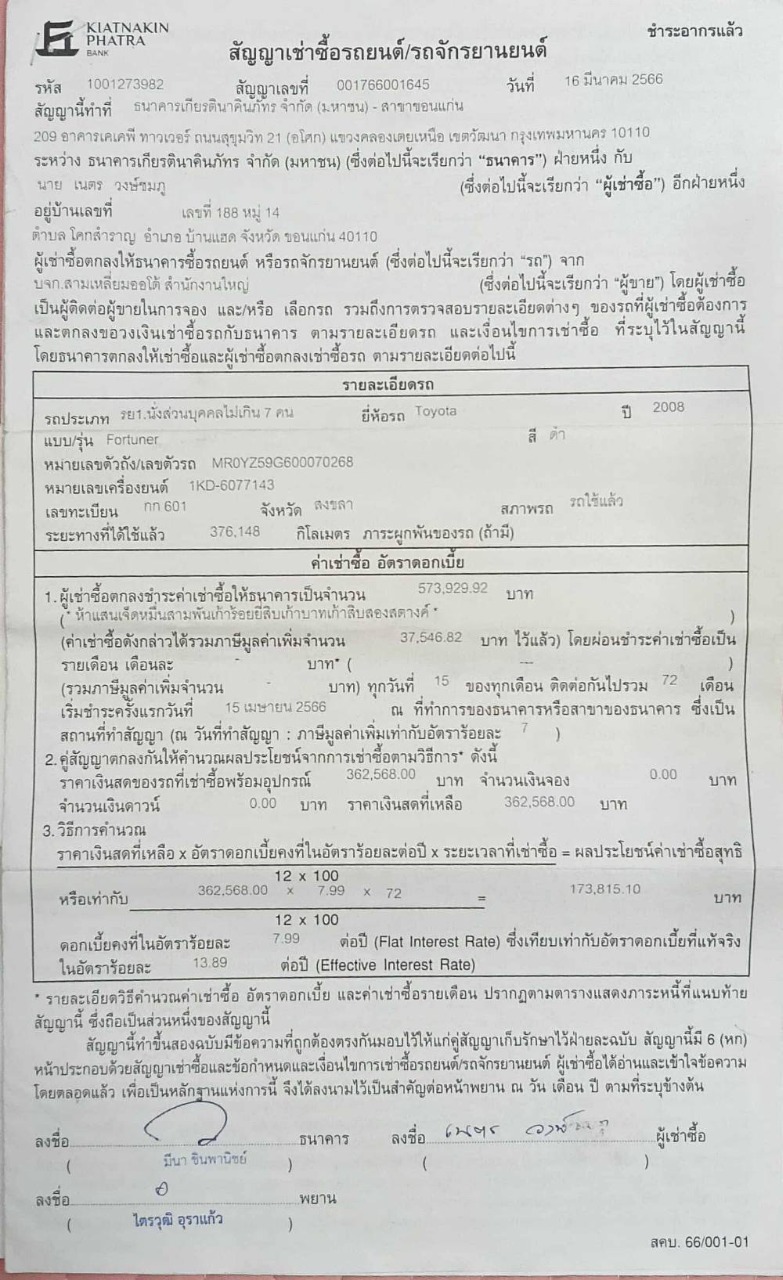 KIATNAKIN
PHATRA
BANK
ชำระอากรแล้ว
สัญญาเช่าซื้อรถยนต์/รถจักรยานยนต์
รหัส 1001273982 สัญญาเลขที่ 001766001645 วันที่ 16 มีนาคม 2566
สัญญานี้ทำที่ ธนาคารเกียรตินาคินภัทร จำกัด (มหาชน) - สาขาขอนแก่น
209 อาคารเคเคพี ทาวเวอร์ ถนนสุขุมวิท 21 (อโศก) แขวงคลองเตยเหนือ เขตวัฒนา กรุงเทพมหานคร 10110
ระหว่าง ธนาคารเกียรตินาคินภัทร จำกัด (มหาชน) (ซึ่งต่อไปนี้จะเรียกว่า "ธนาคาร") ฝ่ายหนึ่ง กับ
นาย เนตร วงษ์ชมภู (ซึ่งต่อไปนี้จะเรียกว่า "ผู้เช่าซื้อ") อีกฝ่ายหนึ่ง
อยู่บ้านเลขที่ เลขที่ 188 หมู่ 14
ตำบล โคกสำราญ อำเภอ บ้านแฮด จังหวัด ขอนแก่น 40110
ผู้เช่าซื้อตกลงให้ธนาคารซื้อรถยนต์ หรือรถจักรยานยนต์ (ซึ่งต่อไปนี้จะเรียกว่า "รถ") จาก
บจก.สามเหลี่ยมออโต้ สำนักงานใหญ่ (ซึ่งต่อไปนี้จะเรียกว่า "ผู้ขาย") โดยผู้เช่าซื้อ
เป็นผู้ติดต่อผู้ขายในการจอง และ/หรือ เลือกรถ รวมถึงการตรวจสอบรายละเอียดต่างๆ ของรถที่ผู้เช่าซื้อต้องการ
และตกลงขอวงเงินเช่าซื้อรถกับธนาคาร ตามรายละเอียดรถ และเงื่อนไขการเช่าซื้อ ที่ระบุไว้ในสัญญานี้
โดยธนาคารตกลงให้เช่าซื้อและผู้เช่าซื้อตกลงเช่าซื้อรถ ตามรายละเอียดต่อไปนี้
รายละเอียดรถ
รถประเภท รย1.นั่งส่วนบุคคลไม่เกิน 7 คน ยี่ห้อรถ Toyota ปี 2008
แบบ/รุ่น Fortuner สี ดำ
หมายเลขตัวถัง/เลขตัวรถ MR0YZ59G600070268
หมายเลขเครื่องยนต์ 1KD-6077143
เลขทะเบียน กก 601 จังหวัด สงขลา สภาพรถ รถใช้แล้ว
ระยะทางที่ได้ใช้แล้ว 376,148 กิโลเมตร ภาระผูกพันของรถ (ถ้ามี)
ค่าเช่าซื้อ อัตราดอกเบี้ย
1. ผู้เช่าซื้อตกลงชำระค่าเช่าซื้อให้ธนาคารเป็นจำนวน 573,929.92 บาท
(* ห้าแสนเจ็ดหมื่นสามพันเก้าร้อยยี่สิบเก้าบาทเก้าสิบสองสตางค์ * )
(ค่าเช่าซื้อดังกล่าวได้รวมภาษีมูลค่าเพิ่มจำนวน 37,546.82 บาท ไว้แล้ว) โดยผ่อนชำระค่าเช่าซื้อเป็น
รายเดือน เดือนละ - บาท* ( --- )
(รวมภาษีมูลค่าเพิ่มจำนวน - บาท) ทุกวันที่ 15 ของทุกเดือน ติดต่อกันไปรวม 72 เดือน
เริ่มชำระครั้งแรกวันที่ 15 เมษายน 2566 ณ ที่ทำการของธนาคารหรือสาขาของธนาคาร ซึ่งเป็น
สถานที่ทำสัญญา (ณ วันที่ทำสัญญา : ภาษีมูลค่าเพิ่มเท่ากับอัตราร้อยละ 7 )
2. คู่สัญญาตกลงกันให้คำนวณผลประโยชน์จากการเช่าซื้อตามวิธีการ* ดังนี้
ราคาเงินสดของรถที่เช่าซื้อพร้อมอุปกรณ์ 362,568.00 บาท จำนวนเงินจอง 0.00 บาท
จำนวนเงินดาวน์ 0.00 บาท ราคาเงินสดที่เหลือ 362,568.00 บาท
3. วิธีการคำนวณ
ราคาเงินสดที่เหลือ x อัตราดอกเบี้ยคงที่ในอัตราร้อยละต่อปี x ระยะเวลาที่เช่าซื้อ = ผลประโยชน์ค่าเช่าซื้อสุทธิ
12 x 100
หรือเท่ากับ 362,568.00 x 7.99 x 72 = 173,815.10 บาท
12 x 100
ดอกเบี้ยคงที่ในอัตราร้อยละ 7.99 ต่อปี (Flat Interest Rate) ซึ่งเทียบเท่ากับอัตราดอกเบี้ยที่แท้จริง
ในอัตราร้อยละ 13.89 ต่อปี (Effective Interest Rate)
* รายละเอียดวิธีคำนวณค่าเช่าซื้อ อัตราดอกเบี้ย และค่าเช่าซื้อรายเดือน ปรากฏตามตารางแสดงภาระหนี้ที่แนบท้าย
สัญญานี้ ซึ่งถือเป็นส่วนหนึ่งของสัญญานี้
สัญญานี้ทำขึ้นสองฉบับมีข้อความที่ถูกต้องตรงกันมอบไว้ให้แก่คู่สัญญาเก็บรักษาไว้ฝ่ายละฉบับ สัญญานี้มี 6 (หก)
หน้าประกอบด้วยสัญญาเช่าซื้อและข้อกำหนดและเงื่อนไขการเช่าซื้อรถยนต์/รถจักรยานยนต์ ผู้เช่าซื้อได้อ่านและเข้าใจข้อความ
โดยตลอดแล้ว เพื่อเป็นหลักฐานแห่งการนี้ จึงได้ลงนามไว้เป็นสำคัญต่อหน้าพยาน ณ วัน เดือน ปี ตามที่ระบุข้างต้น
ลงชื่อ ธนาคาร ลงชื่อ เนตร วงษ์ชมภู ผู้เช่าซื้อ
( มีนา ชินพานิชย์ ) ( )
ลงชื่อ พยาน
( ไตรวุฒิ อุราแก้ว )
สคบ. 66/001-01